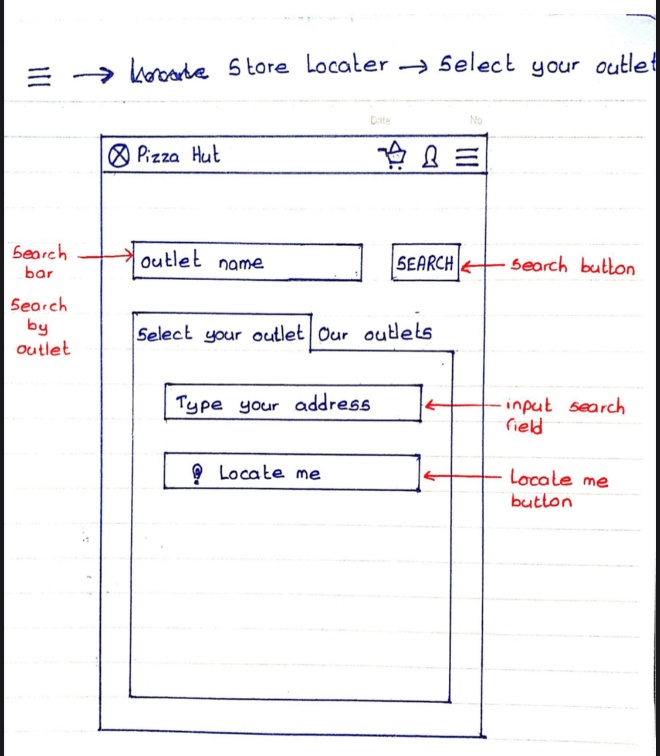 Store Locater → Select your outlet
Date No
Pizza Hut
Search bar
outlet name
SEARCH
Search button
Search by outlet
Select your outlet
Our outlets
Type your address
input search field
Locate me
Locate me button